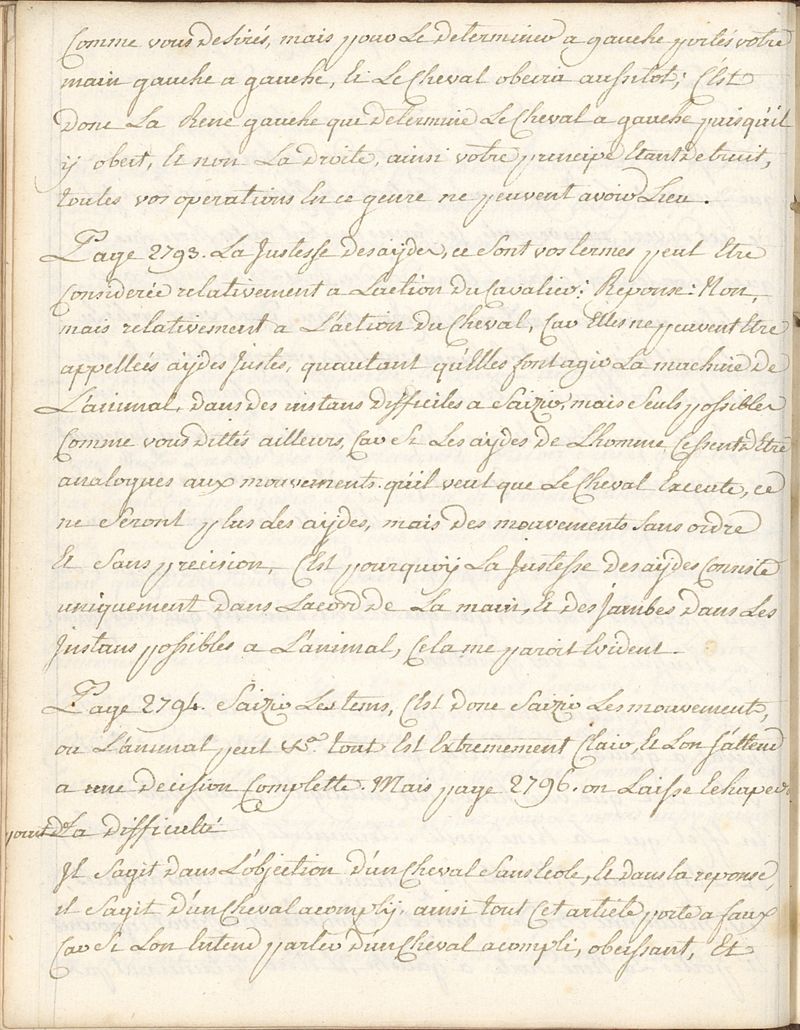 Comme vous desirés, mais pour Le determiner a gauche portés votre
main gauche a gauche, Et Le Cheval obeira aussitot; C'Est
donc La Rene gauche que determine Le Cheval a gauche puisqu'il
y obeit, Et non La droite, ainsi votre principe Etant detruit,
toutes vos operations En ce genre ne peuvent avoir Lieu.
Page 2793. La Justesse des aydes, ce sont vos termes peut Etre
Considerée relativement a Laction du Cavalier: Reponse: Non,
mais relativement a L'action du Cheval, Car Elles ne peuvent Etre
appellées aydes Justes, qu'autant qu'Elles font agir La machine de
L'animal, dans des instans difficiles a Saizir, mais Seuls possibles
Comme vous dittes ailleurs, Car Si Les aydes de L'homme Cessent d'Etre
analogues aux mouvements qu'il veut que Le Cheval Execute, ce
ne Seront plus des aydes, mais des mouvements Sans ordre
Et Sans precision, C'Est pourquoy La Justesse des aydes Consiste
uniquement dans Lacord de La main, Et des Jambes dans Les
Instans possibles a L'animal, Cela me paroit Evident.
Page 2794. Saizir Les tems, C'Est donc Saizir Les mouvements,
ou L'animal peut &ca. tout Est Extremement Clair, Et Lon s'attend
a une decision Complette. Mais page 2796. on Laisse Echaper
La difficulté
Il Sagit dans L'objection d'un Cheval Sans Ecole, Et dans la reponse,
il Sagit d'un Cheval acomply, ainsi tout Cet article porte a faux
Car Si Lon Entend parler d'un Cheval acompli, obeissant, Et